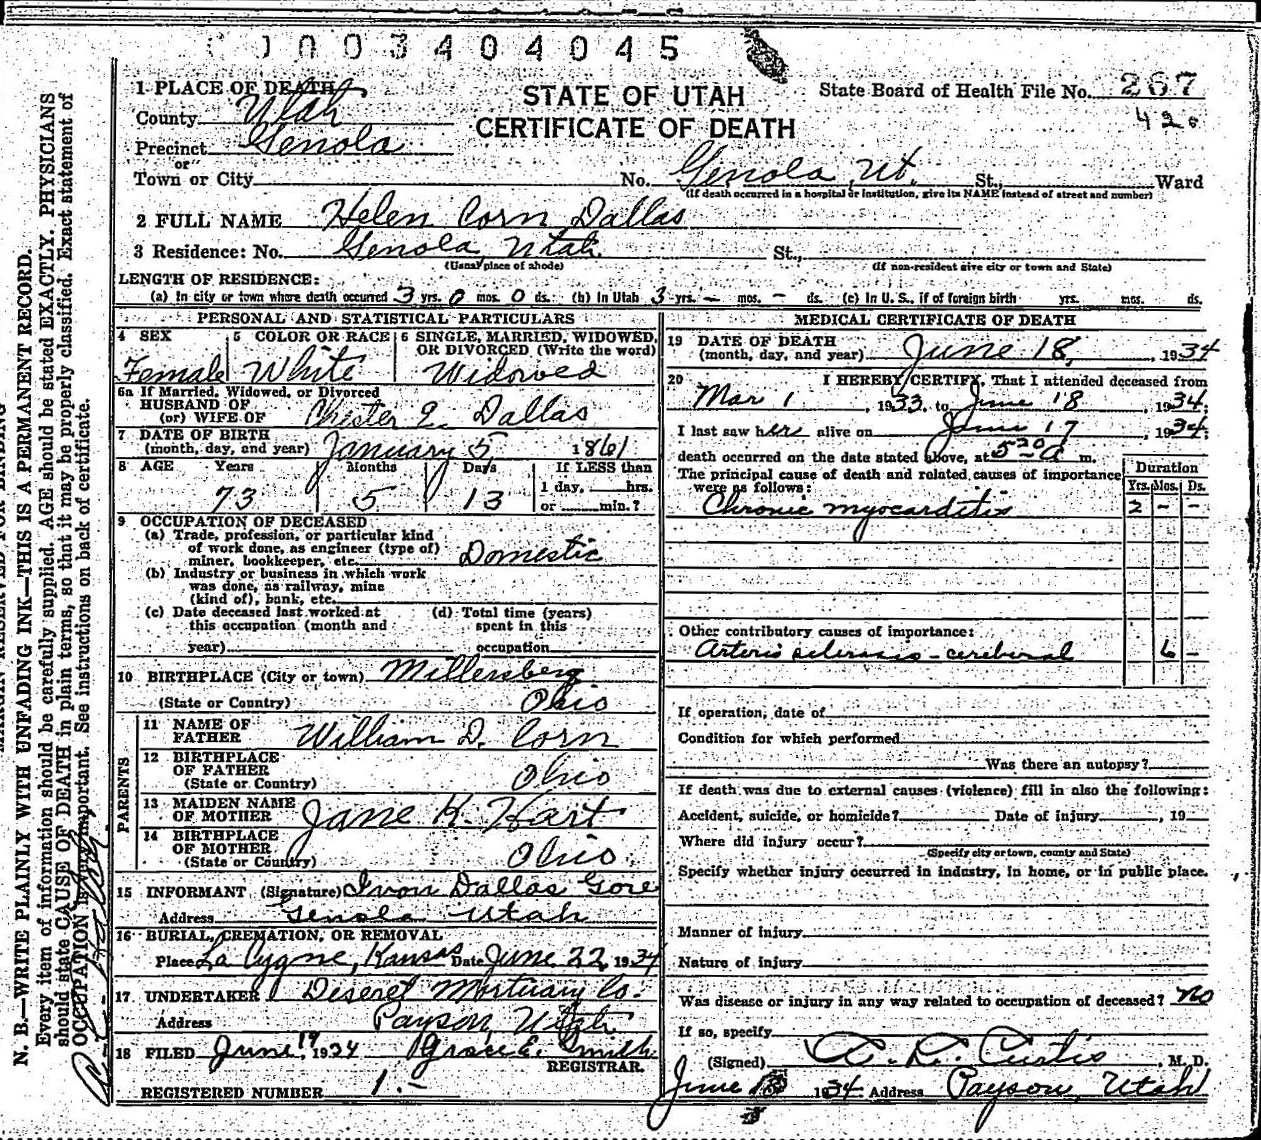 0 0 0 3 4 0 4 0 4 5
1 PLACE OF DEATH
County Utah
Precinct Genola
or
Town or City
STATE OF UTAH
CERTIFICATE OF DEATH
State Board of Health File No. 267
420
No. Genola Ut. St., Ward
(If death occurred in a hospital or institution, give its NAME instead of street and number)
2 FULL NAME Helen Corn Dallas
3 Residence: No. Genola Utah. St.,
(Usual place of abode) (If non-resident give city or town and State)
LENGTH OF RESIDENCE:
(a) In city or town where death occurred 3 yrs. 0 mos. 0 ds. (b) In Utah 3 yrs. - mos. - ds. (c) In U. S., if of foreign birth yrs. mos. ds.
PERSONAL AND STATISTICAL PARTICULARS
4 SEX
Female
5 COLOR OR RACE
White
6 SINGLE, MARRIED, WIDOWED, OR DIVORCED (Write the word)
Widowed
6a If Married, Widowed, or Divorced
HUSBAND OF
(or) WIFE OF Chester E. Dallas
7 DATE OF BIRTH
(month, day, and year) January 5 1861
8 AGE Years Months Days If LESS than
1 day, hrs.
73 5 13 or min.?
9 OCCUPATION OF DECEASED
(a) Trade, profession, or particular kind
of work done, as engineer (type of)
miner, bookkeeper, etc. Domestic
(b) Industry or business in which work
was done, as railway, mine
(kind of), bank, etc.
(c) Date deceased last worked at
this occupation (month and
year)
(d) Total time (years)
spent in this
occupation
10 BIRTHPLACE (City or town) Millersberg
(State or Country) Ohio
PARENTS
11 NAME OF
FATHER William D. Corn
12 BIRTHPLACE
OF FATHER
(State or Country) Ohio
13 MAIDEN NAME
OF MOTHER Jane K. Hart
14 BIRTHPLACE
OF MOTHER
(State or Country) Ohio.
15 INFORMANT (Signature) Ivon Dallas Gore
Address Genola Utah
16 BURIAL, CREMATION, OR REMOVAL
Place La Cygne, Kansas Date June 22, 1934
17 UNDERTAKER Deseret Mortuary Co.
Address Payson, Utah
18 FILED June 19 1934 Grace E. Smith
REGISTRAR.
REGISTERED NUMBER 1.-
MEDICAL CERTIFICATE OF DEATH
19 DATE OF DEATH
(month, day, and year) June 18, 1934
20 I HEREBY CERTIFY, That I attended deceased from
Mar 1, 1933, to June 18, 1934.
I last saw her alive on June 17, 1934.
death occurred on the date stated above, at 5 20 a m.
The principal cause of death and related causes of importance
were as follows:
Duration
Yrs. Mos. Ds.
Chronic myocarditis 2 - -
Other contributory causes of importance:
Arterio sclerosis - cerebral 6 -
If operation, date of
Condition for which performed
Was there an autopsy?
If death was due to external causes (violence) fill in also the following:
Accident, suicide, or homicide? Date of injury , 19
Where did injury occur?
(Specify city or town, county and State)
Specify whether injury occurred in industry, in home, or in public place.
Manner of injury
Nature of injury
Was disease or injury in any way related to occupation of deceased? No
If so, specify
(Signed) A. L. Curtis, M. D.
June 18 1934 Address Payson, Utah
MARGIN RESERVED FOR BINDING
N. B.—WRITE PLAINLY WITH UNFADING INK—THIS IS A PERMANENT RECORD.
Every item of information should be carefully supplied. AGE should be stated EXACTLY. PHYSICIANS
should state CAUSE OF DEATH in plain terms, so that it may be properly classified. Exact statement of
OCCUPATION is important. See instructions on back of certificate.